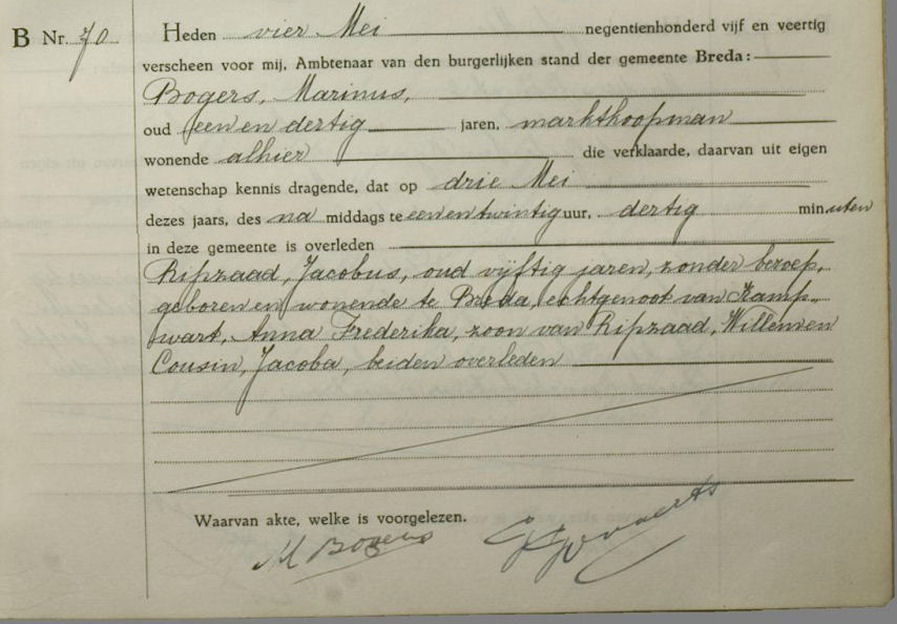 B Nr. 70
Heden vier Mei negentienhonderd vijf en veertig
verscheen voor mij, Ambtenaar van den burgerlijken stand der gemeente Breda:
Bogers, Marinus,
oud een en dertig jaren, marktkoopman
wonende alhier die verklaarde, daarvan uit eigen
wetenschap kennis dragende, dat op drie Mei
dezes jaars, des na middags te een en twintig uur, dertig minuten
in deze gemeente is overleden
Ripzaad, Jacobus, oud vijftig jaren, zonder beroep,
geboren en wonende te Breda, echtgenoot van Kamp-
wart, Anna Frederika, zoon van Ripzaad, Willem en
Cousin, Jacoba, beiden overleden
Waarvan akte, welke is voorgelezen.
M Bogers